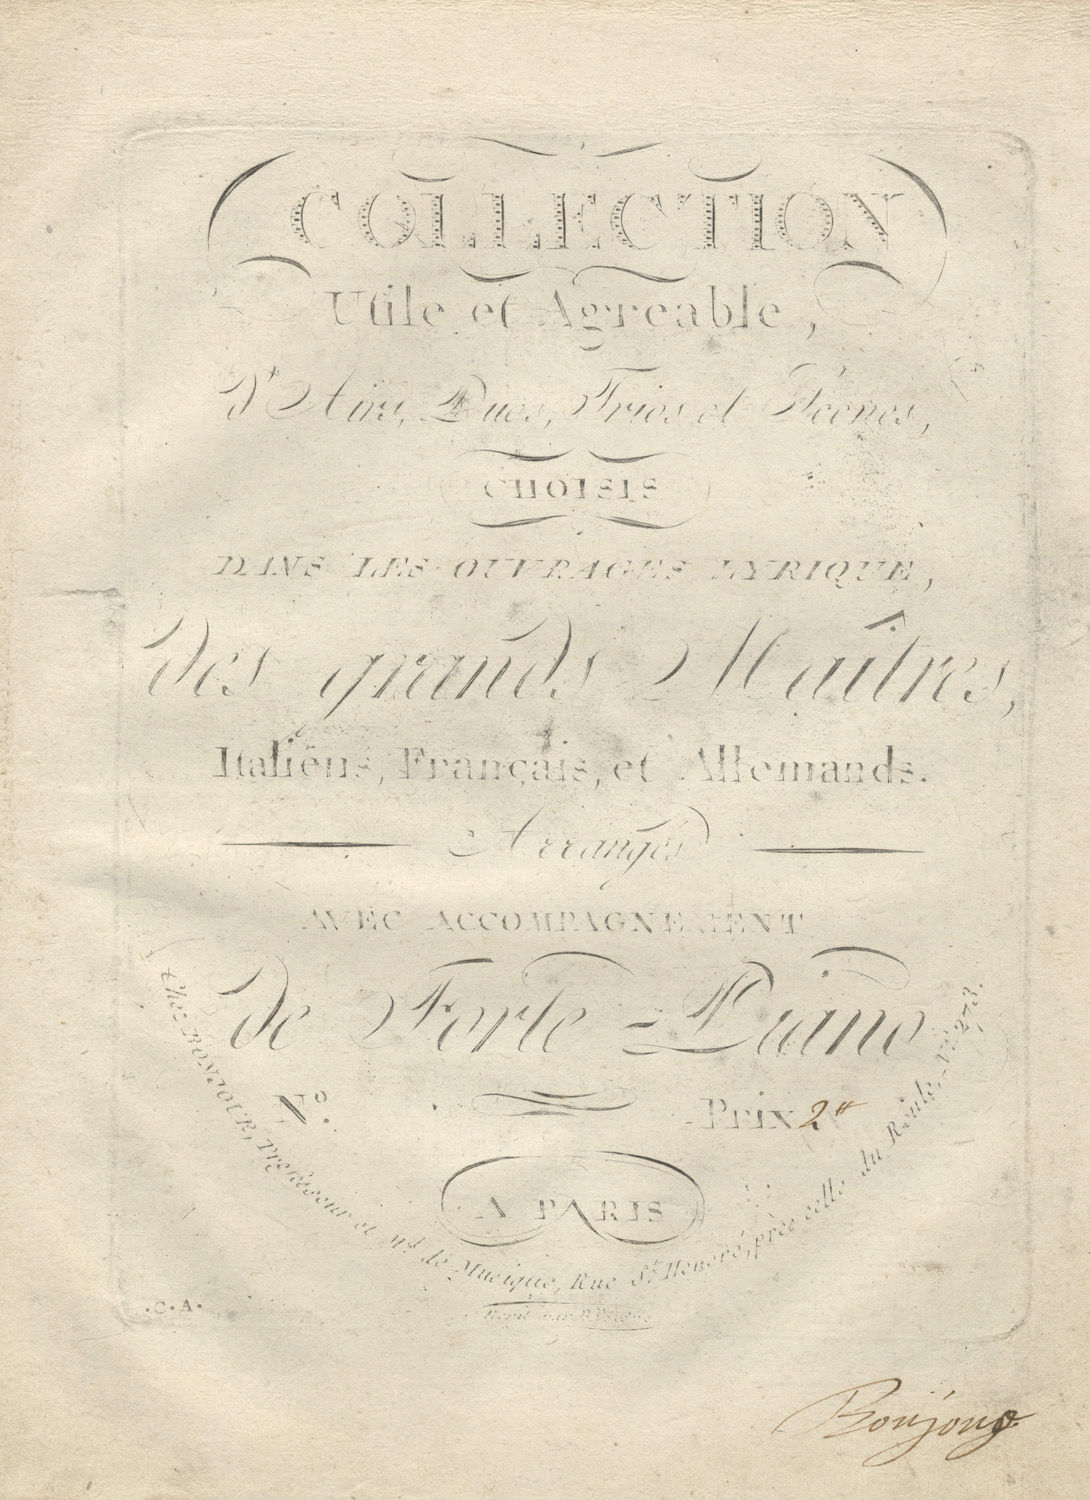 COLLECTION
Utile et Agreable,
d'Airs, Duos, Trios et Scénes,
CHOISIS
DANS LES OUVRAGES LYRIQUE,
des grands Maîtres,
Italiêns, Français, et Allemands.
Arrangés
AVEC ACCOMPAGNEMENT
de Forte=Piano
N°.
Prix 2#
A PARIS
Chez BONJOUR, Professeur et Md. de Musique, Rue St. Honoré, près celle du Roule, N°. 273.
.C.A.